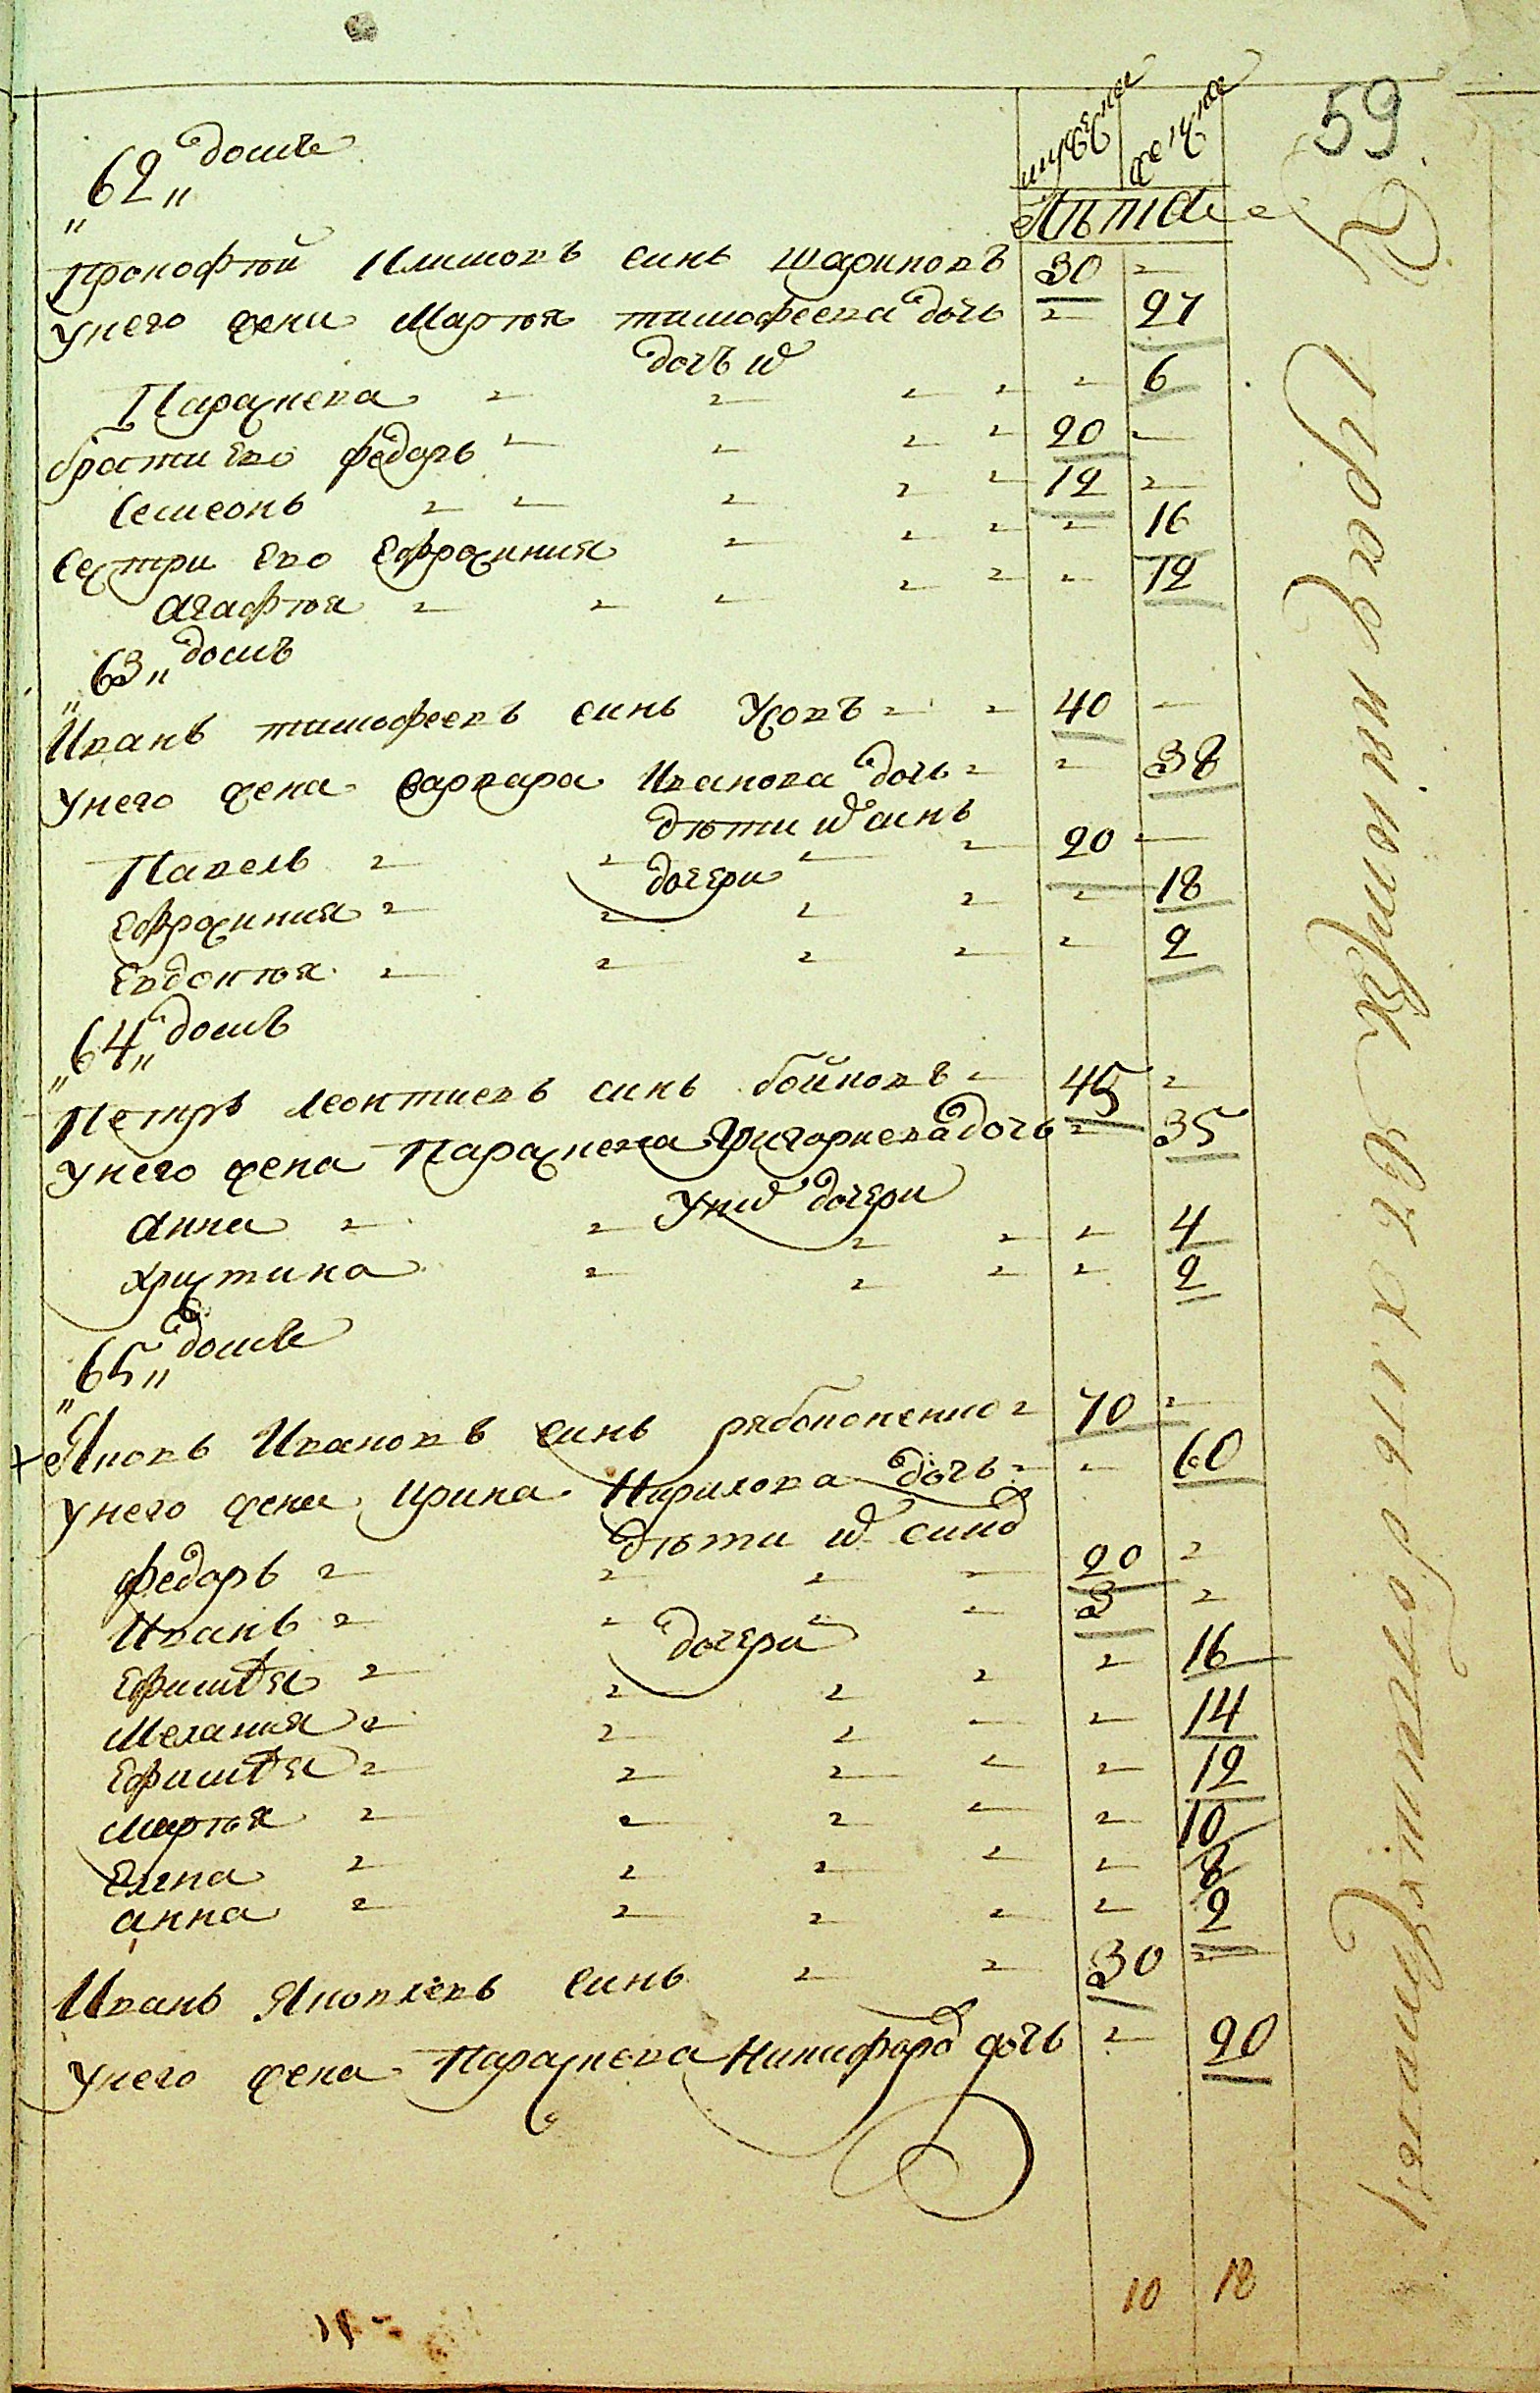 59
мужеска женска
Лѣта
„62„ домъ
Прокофѣй Климовъ синъ шариповъ 30
Унего жена Марѳѣя тимофеева дочь 27
дочъ и҆хъ
Параскева 6
брати Его федоръ 20
Семеонъ 12
Сестри Его Ефросиния 16
Агафѣя 12
„63„ домъ
Иванъ тимофеевъ синъ Усовъ 40
Унего жена варвара Иванова дочь 38
дѣти ихъ синъ
Павелъ 20
дочери
Ефросиния 18
Евдокѣя 2
„64„ домъ
Петръ леонтиевъ синъ бойковъ 45
Унего жена Параскева Григориева дочь 35
Уних дочери
Анна 4
христина 2
„65„ домъ
Яковъ Ивановъ синъ рябоконенко 70
Унего жена ирина Кирилова дочь 60
дѣти их сины
федоръ 20
Иванъ 3
дочери
Ефимѣя 16
Мелания 14
Ефимѣя 12
Марѳѣя 10
Елена 8
анна 2
Иванъ Яковлевъ синъ 30
Унего жена Параскева Никифоро дочь 20
10 18